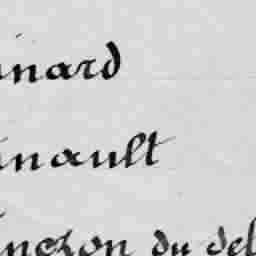 inard
inault
inchon du del